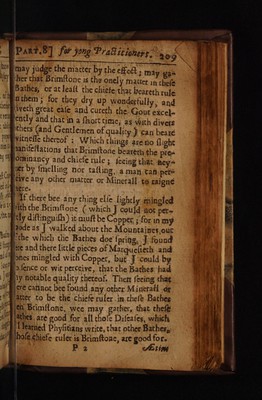 PART. 8] for yong Practitioners. 209
may judge the matter by the effect; may ga-
her that Brimstone is the onely matter in these
Bathes, or at least the chiefe that beareth rule
in them; for they dry up wonderfully, and
iveth great ease and cureth the Gout excel-
ently and that in a short time, as with divers
thers (and Gentlemen of quality) can beare
witnesse thereof: Which things are no slight
manifestations that Brimstone beareth the pre-
ominancy and chiefe rule; seeing that ney-
er by smelling nor tasting, a man can per-
eive any other matter or Minerall to raigne
here.
If there bee any thing else slightly mingled
ith the Brimstone (which I could not per-
tly distinguish) it must be Copper; for in my
ode as I walked about the Mountaines, out
the which the Bathes doe spring, J found
e and there little pieces of Marquesieth and
ones mingled with Copper, but J could by
sence or wit perceive, that the Bathes had
y notable quality thereof. Then seeing that
ere cannot bee found any other Minerall or
atter to be the chiefe ruler in these Bathes
en Brimstone, wee may gather, that these
athes are good for all those Diseases, which
learned Physitians write, that other Bathes,
hose chiefe ruler is Brimstone, are good for.
P 2 Ætius